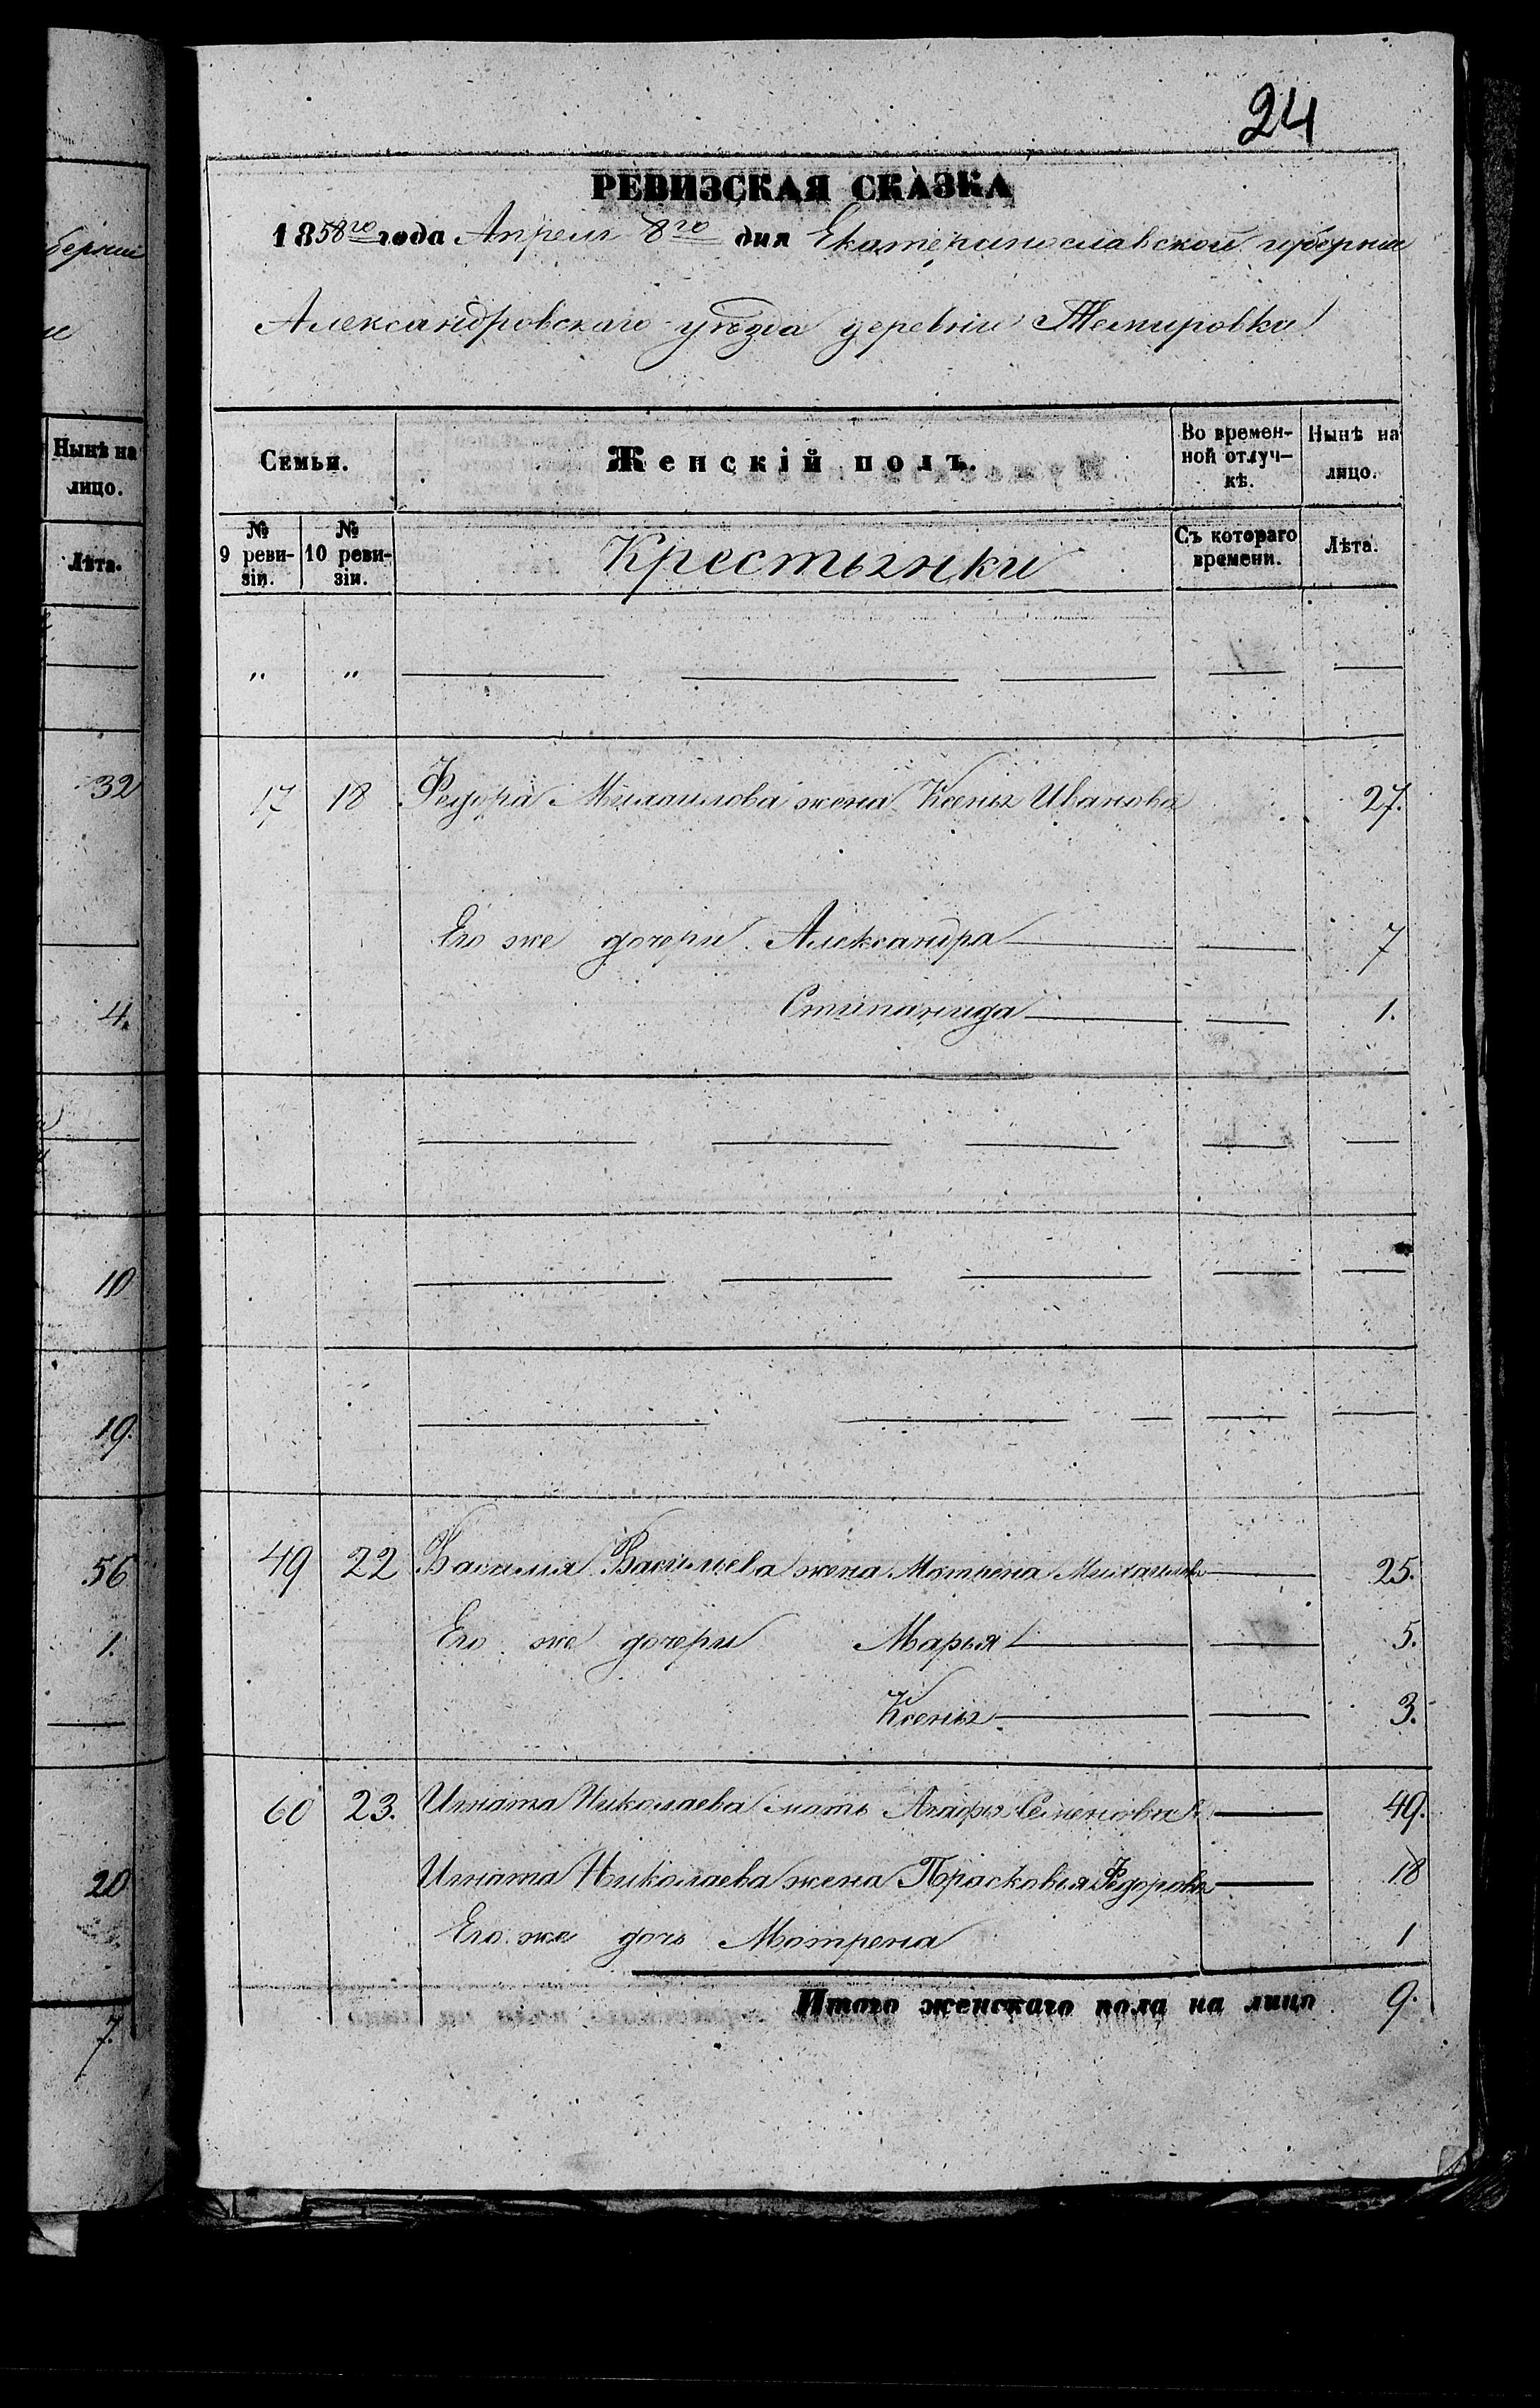 24
РЕВИЗСКАЯ СКАЗКА
1858го года Апреля 8го дня Екатеринославской губернии
Александровскаго уѣзда деревни Темировки
Семьи. Женскій полъ. Во времен-ной отлуч-кѣ. Нынѣ на лицо.
№ 9 реви-зіи. № 10 реви-зіи. Крестьянки Съ котораго времени. Лѣта.
" "
17 18 Федора Михаилова жена Ксенья Иванова 27.
Его же дочери Александра 7
Стипанида 1.
49 22 Василия Васильева жена Мотрена Михаилова 25.
Его же дочери Марья 5.
Ксенья 3.
60 23. Игната Николаева мать Агафья Семенова 49.
Игната Николаева жена Прасковья Федорова 18
Его же дочь Мотрена 1
Итого женскаго пола на лицо 9.
берніи
Нынѣ на
лицо.
Лѣта.
32
4.
10
19.
56
1.
20
7.